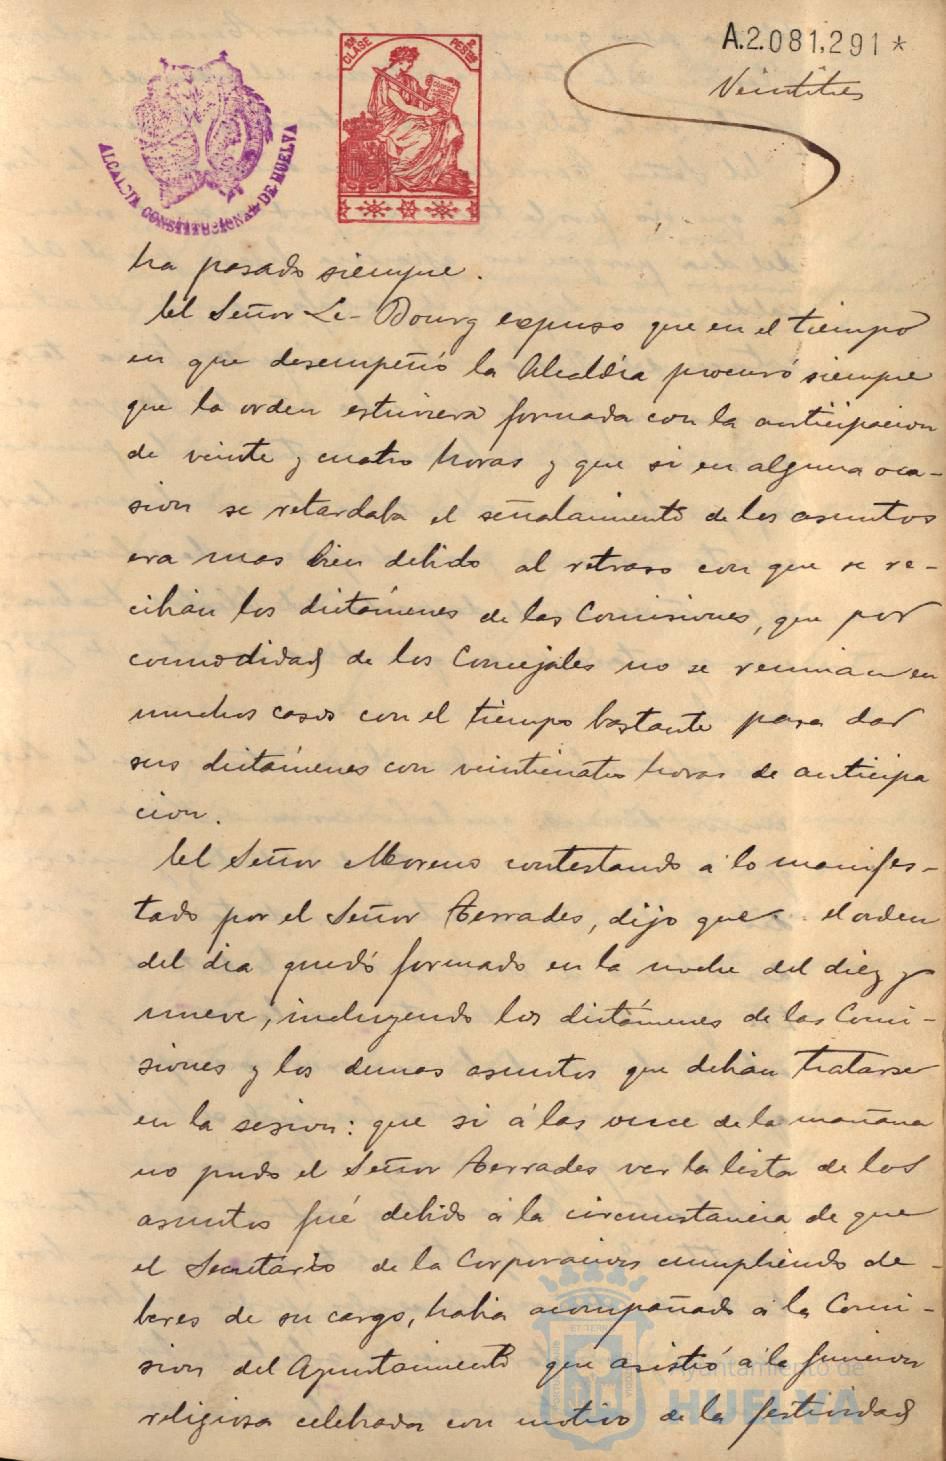 A.2.081,291 *
Veintitres
10ª CLASE
2 PESETAS
ALCALDIA CONSTITUCIONAL DE HUELVA
ha pasado siempre.
El Señor Le-Bourg expuso que en el tiempo
en que desempeñó la Alcaldía procuró siempre
que la orden estuviera formada con la anticipacion
de veinte y cuatro horas y que si en alguna oca-
sion se retardaba el señalamiento de los asuntos
era mas bien debido al retraso con que se re-
cibian los dictámenes de las Comisiones, que por
comodidad de los Concejales no se reunian en
muchos casos con el tiempo bastante para dar
sus dictámenes con veinticuatro horas de anticipa
cion.
El Señor Moreno contestando á lo manifes-
tado por el Señor Terrades, dijo que el orden
del dia quedó formado en la noche del diez y
nueve, incluyendo los dictámenes de las Comi-
siones y los demas asuntos que debian tratarse
en la sesion: que si á las once de la mañana
no pudo el Señor Terrades ver la lista de los
asuntos fué debido á la circunstancia de que
el Secretario de la Corporacion cumpliendo de-
beres de su cargo, habia acompañado á la Comi-
sion del Ayuntamiento que asistió á la funcion
religiosa celebrada con motivo de la festividad
Ayuntamiento de
HUELVA